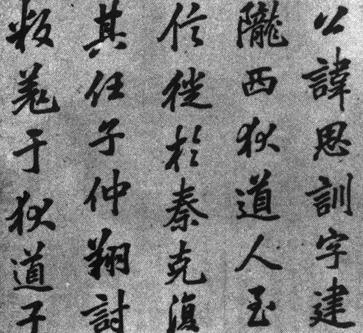 公諱思訓字建
隴西狄道人至
信徙於秦克復
其任子仲翔討
叛羌于狄道子